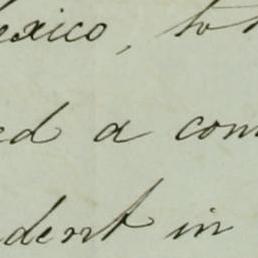 exico, to
ed a com
dent in